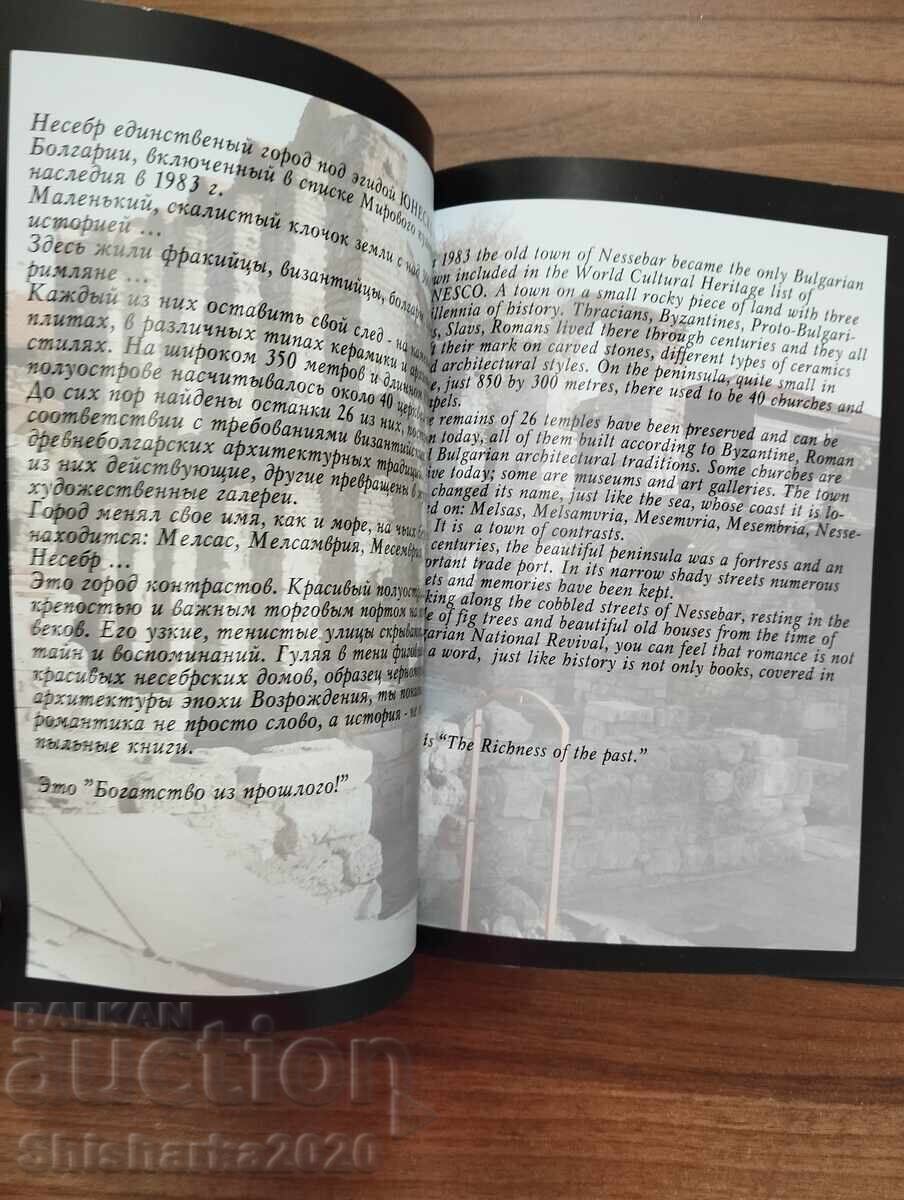 Несебр единственый город под эгидой
Болгарии, включенный в списке Мирового
наследия в 1983 г.
Маленький, скалистый клочок земли с над
историей ...
Здесь жили фракийцы, византийцы,
римляне ...
Каждый из них оставить свой след - на
плитах, в различных типах керамики и
стилях. На широком 350 метров и длинном
полуострове насчитывалось около 40
До сих пор найдены останки 26 из них,
соответствии с требованиями
древнеболгарских архитектурных традиций
из них действующие, другие превращены в
художественные галереи.
Город менял свое имя, как и море, на чьих
находится: Мелсас, Мелсамврия,
Несебр ...
Это город контрастов. Красивый
крепостью и важным торговым портом на
веков. Его узкие, тенистые улицы
тайн и воспоминаний. Гуляя в тени
красивых несебрских домов, образец
архитектуры эпохи Возрождения, ты
романтика не просто слово, а история - не
пыльные книги.
Это "Богатство из прошлого!"
1983 the old town of Nessebar became the only Bulgarian
included in the World Cultural Heritage list of
A town on a small rocky piece of land with three
of history. Thracians, Byzantines, Proto-Bulgari-
Slavs, Romans lived there through centuries and they all
their mark on carved stones, different types of ceramics
architectural styles. On the peninsula, quite small in
just 850 by 300 metres, there used to be 40 churches and
remains of 26 temples have been preserved and can be
today, all of them built according to Byzantine, Roman
Bulgarian architectural traditions. Some churches are
today; some are museums and art galleries. The town
changed its name, just like the sea, whose coast it is lo-
on: Melsas, Melsamvria, Mesemvria, Mesembria, Nesse-
It is a town of contrasts.
centuries, the beautiful peninsula was a fortress and an
trade port. In its narrow shady streets numerous
and memories have been kept.
along the cobbled streets of Nessebar, resting in the
of fig trees and beautiful old houses from the time of
National Revival, you can feel that romance is not
a word, just like history is not only books, covered in
is "The Richness of the past."
BALKAN
auction
Shisharka2020